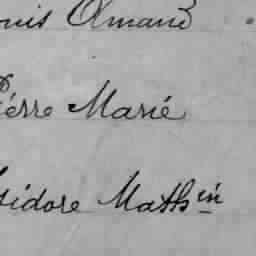 ouis Amand
Pierre Marié
sidore Mathin